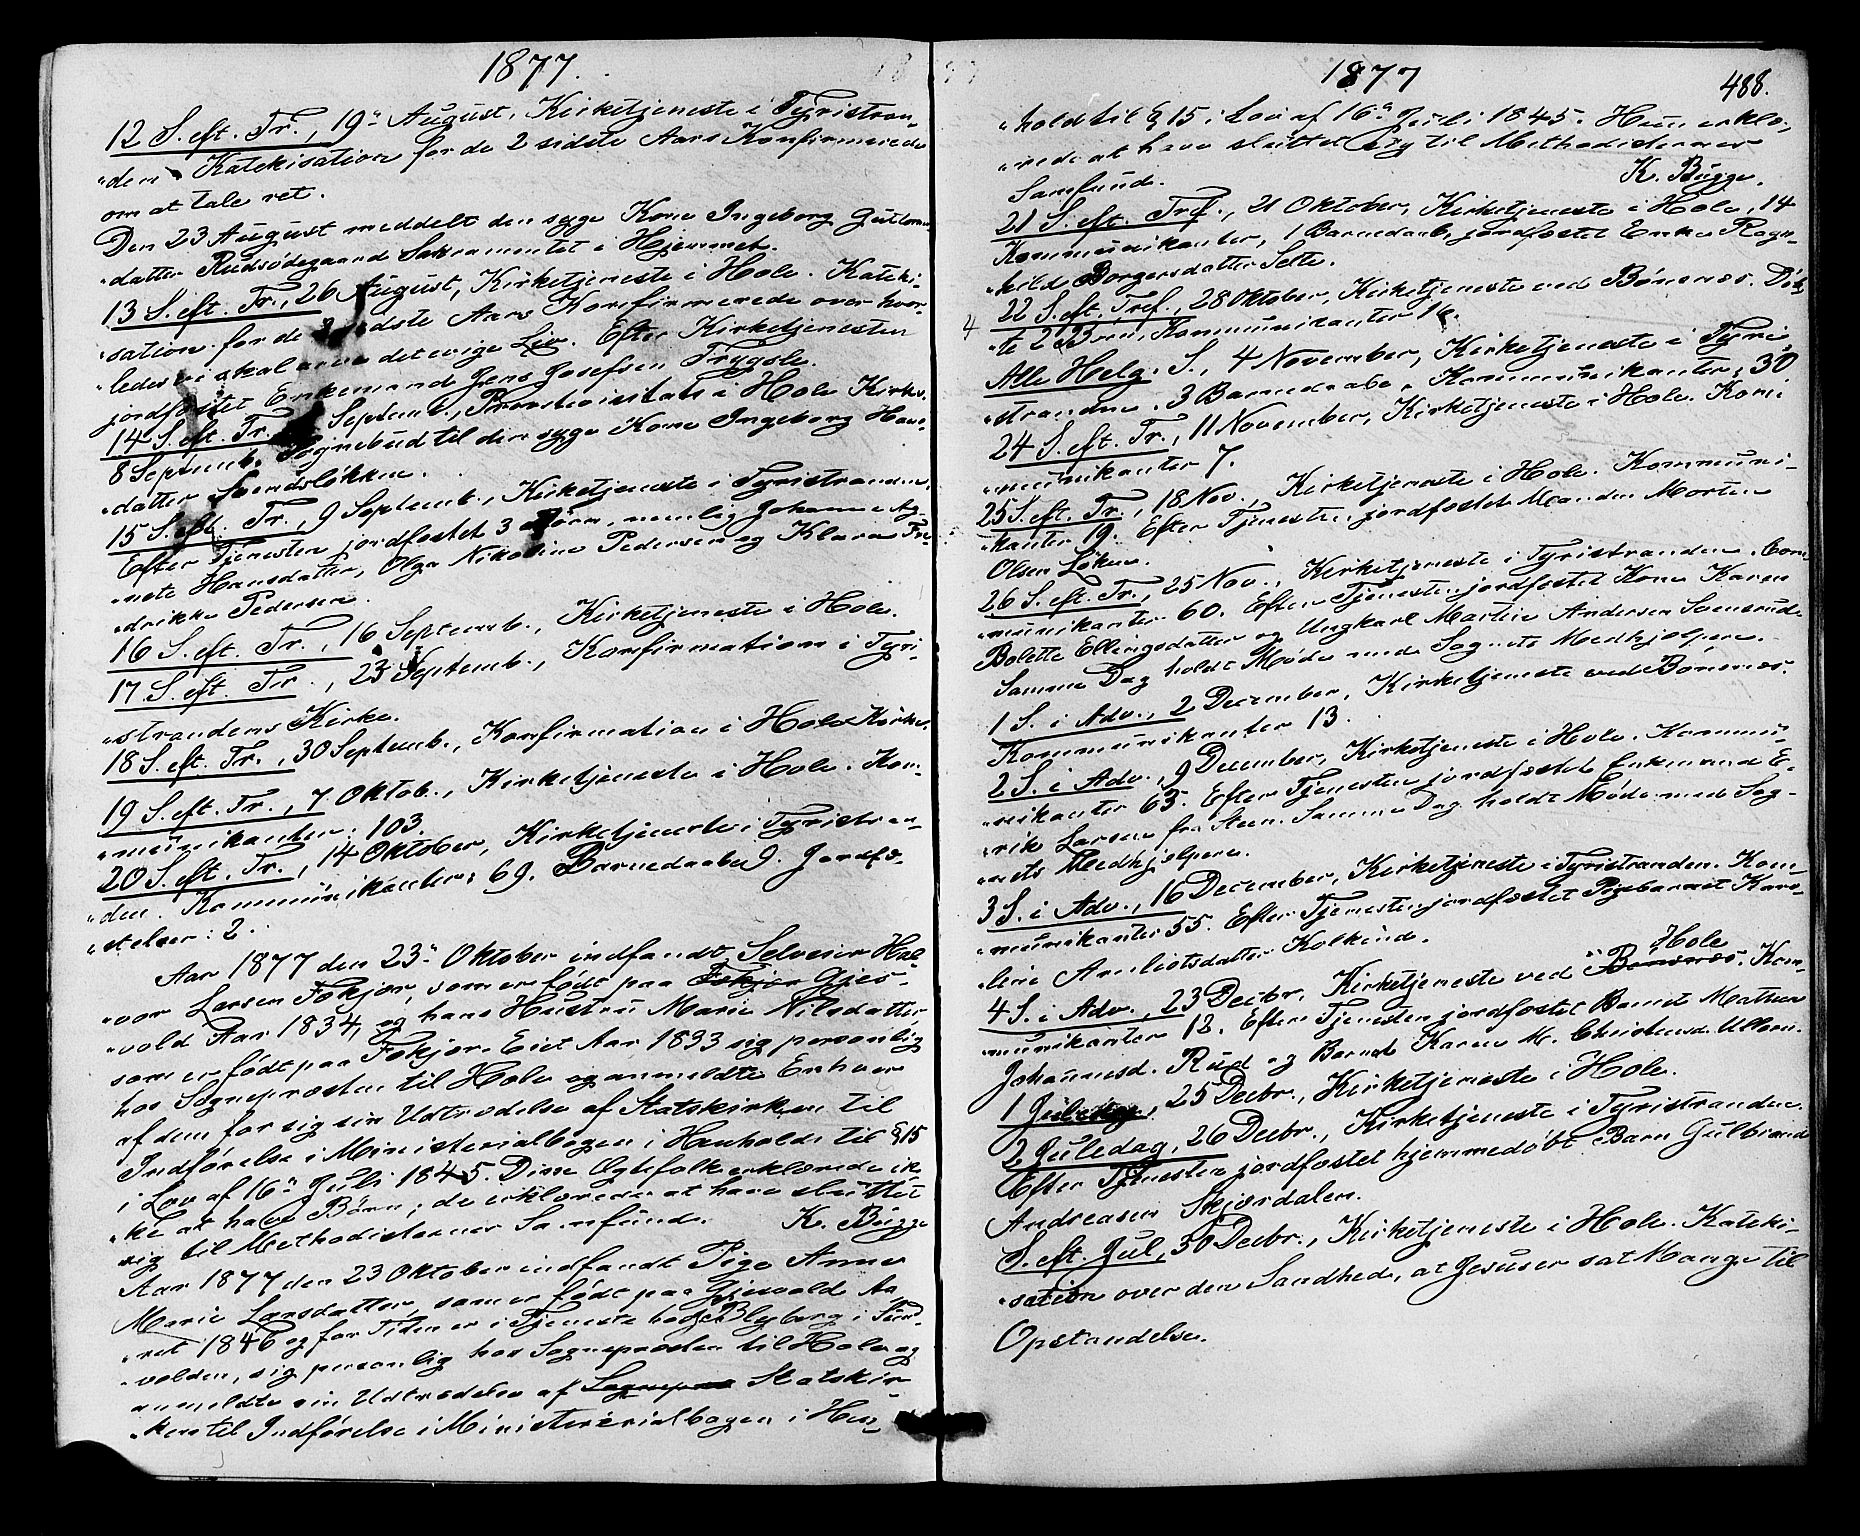 1877.
12 S. eft. Tr., 19de August, Kirketjeneste i Tyristran-
"den. Katekisation for de 2 sidste Aars Konfirmerede
om at tale ret.
Den 23 August meddelt den syge Kone Ingeborg Guttorms-
"datter Rudsødegaard Sakramentet i Hjemmet.
13 S. eft. Tr., 26 August, Kirketjeneste i Hole. Kateki-
"sation for de 2 sidste Aars Konfirmerede over hvor-
"ledes vi skal arve det evige Liv. Efter Kirketjenesten
jordfæstet Enkemand Jens Josefsen Trygsle.
14 S. eft. Tr. Septemb., Provstevisitats i Hole Kirke.
8 Septemb. Sognebud til den syge Kone Ingeborg Hans-
datter Svendsløkken.
15 S. eft. Tr., 9 Septemb., Kirketjeneste i Tyristranden.
Efter Tjenesten jordfæstet 3 Børn, nemlig Johanne Ag-
"nete Hansdatter, Olga Nikoline Pedersen og Klara Fre-
"drikke Pedersen.
16 S. eft. Tr., 16 Septemb., Kirketjeneste i Hole.
17 S. eft. Tr., 23 Septemb., Konfirmation i Tyri-
"strandens Kirke.
18 S. eft. Tr., 30 Septemb., Konfirmation i Hole Kirke.
19 S. eft. Tr., 7 Oktob., Kirketjeneste i Hole. Kom-
"munikanter: 103.
20 S. eft. Tr., 14 Oktober, Kirketjeneste i Tyristran-
"den. Kommunikanter: 69. Barnedaab 9. Jordfæ-
"stelser: 2.
Aar 1877 den 23de Oktober indfandt Selveier Hal-
"vor Larsen Fokjær, som er født paa Fokjær Gjes-
"vold Aar 1834, og hans Hustru Marie Nilsdatter
som er født paa Fokjær Eiet Aar 1833 sig personlig
hos Sognepræsten til Hole og anmeldte Enhver
af dem for sig sin Udtrædelse af Statskirken til
Indførelse i Ministerialbogen i Henhold til § 15
i Lov af 16de Juli 1845. Disse Ægtefolk erklærede ik-
"ke at have Børn; de erklærede at have sluttet
sig til Methodisternes Samfund. K. Bugge
Aar 1877 den 23 Oktober indfandt Pige Anne
Marie Larsdatter, som er født paa Gjesvold Aa-
"ret 1846 og for Tiden er i Tjeneste hos Blyberg i Sund-
"volden, sig personlig hos Sognepræsten til Hole og
anmeldte sin Udtrædelse af Sognepræs Statskir-
"ken til Indførelse i Ministerialbogen i Hen-
1877
488.
"hold til § 15 i Lov af 16de Juli 1845. Hun erklæ-
"rede at have sluttet sig til Methodisternes
Samfund. K. Bugge.
21 S. eft. Tref., 21 Oktober, Kirketjeneste i Hole, 14
Kommunikanter, 1 Barnedaab, jordfæstet Enke Ragn-
"hild Borgersdatter Selte.
22 S. eft. Tref., 28 Oktober, Kirketjeneste ved Bønsnæs. Døb-
"te 2 Børn, Kommunikanter 16.
Alle Helg. S., 4 November, Kirketjeneste i Tyri-
"stranden. 3 Barnedaabe. Kommunikanter, 30
24 S. eft. Tr., 11 November, Kirketjeneste i Hole. Kom-
"munikanter 7.
25 S. eft. Tr., 18 Nov., Kirketjeneste i Hole. Kommuni-
"kanter 19. Efter Tjenesten jordfæstet Manden Morten
Olsen Løken.
26 S. eft. Tr., 25 Nov., Kirketjeneste i Tyristranden. Com-
"munikanter 60. Efter Tjenesten jordfæstet Kone Karen
Bolette Ellingsdatter og Ungkarl Martin Andersen Svensrud.
Samme Dag holdt Møde med Sognets Medhjælpere.
1 S. i Adv., 2 December, Kirketjeneste ved Bønsnæs.
Kommunikanter 13.
2 S. i Adv., 9 December, Kirketjeneste i Hole. Kommu-
"nikanter 65. Efter Tjenesten jordfæstet Enkemand E-
"rik Larsen fra Steen. Samme Dag holdt Møde med Sog-
"nets Medhjælpere.
3 S. i Adv., 16 December, Kirketjeneste i Tyristranden. Kom-
"munikanter 55. Efter Tjenesten jordfæstet Pigebarnet Karo-
"line Arnliotsdatter Kolkind.
4 S. i Adv., 23 Decbr., Kirketjeneste ved Bønsnæs Hole. Kom-
"munikanter 12. Efter Tjenesten jordfæstet Barnet Mathea
Johannesd. Rud og Barnet Karen M. Christensd. Ullern.
1 Juledag, 25 Decbr., Kirketjeneste i Hole.
2 Juledag, 26 Decbr., Kirketjeneste i Tyristranden.
Efter Tjenesten jordfæstet hjemmedøbt Barn Gulbrand
Andreasen Skjærdalen.
S. eft. Jul, 30 Decbr., Kirketjeneste i Hole. Kateki-
"sation over den Sandhed, at Jesus er sat Mange til
Opstandelse.